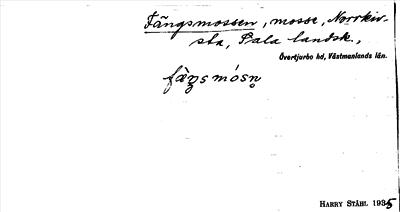 Fängsmossen, mosse, Norrkiv-
sta, Sala landsk.,
Övertjurbo hd, Västmanlands län.
HARRY STÅHL 1935